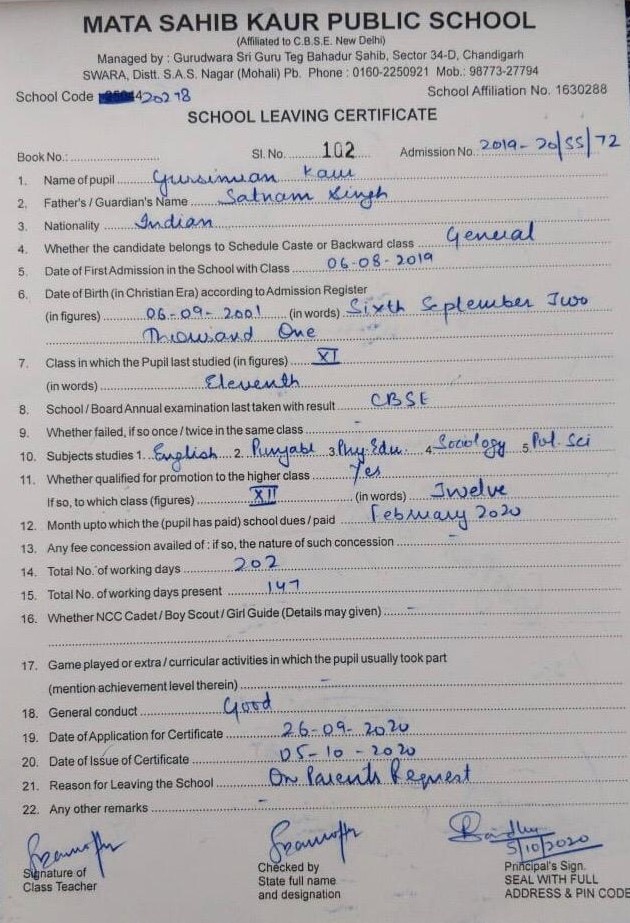 MATA SAHIB KAUR PUBLIC SCHOOL
(Affiliated to C.B.S.E. New Delhi)
Managed by : Gurudwara Sri Guru Teg Bahadur Sahib, Sector 34-D, Chandigarh
SWARA, Distt. S.A.S. Nagar (Mohali) Pb. Phone : 0160-2250921 Mob.: 98773-27794
School Code 20278 School Affiliation No. 1630288
SCHOOL LEAVING CERTIFICATE
Book No.: Sl. No. 102 Admission No. 2019-20/SS/72
1. Name of pupil Gursimran Kaur
2. Father's / Guardian's Name Satnam Singh
3. Nationality Indian
4. Whether the candidate belongs to Schedule Caste or Backward class General
5. Date of First Admission in the School with Class 06-08-2019
6. Date of Birth (in Christian Era) according to Admission Register
(in figures) 06-09-2001 (in words) Sixth September Two
Thousand One
7. Class in which the Pupil last studied (in figures) XI
(in words) Eleventh
8. School / Board Annual examination last taken with result CBSE
9. Whether failed, if so once / twice in the same class -
10. Subjects studies 1. English 2. Punjabi 3. Phy. Edu. 4. Sociology 5. Pol. Sci
11. Whether qualified for promotion to the higher class Yes
If so, to which class (figures) XII (in words) Twelve
12. Month upto which the (pupil has paid) school dues / paid February 2020
13. Any fee concession availed of : if so, the nature of such concession -
14. Total No. of working days 202
15. Total No. of working days present 147
16. Whether NCC Cadet / Boy Scout / Girl Guide (Details may given) -
17. Game played or extra / curricular activities in which the pupil usually took part
(mention achievement level therein) -
18. General conduct Good
19. Date of Application for Certificate 26-09-2020
20. Date of Issue of Certificate 05-10-2020
21. Reason for Leaving the School On Parents Request
22. Any other remarks -
5/10/2020
Signature of Checked by Principal's Sign.
Class Teacher State full name SEAL WITH FULL
and designation ADDRESS & PIN CODE